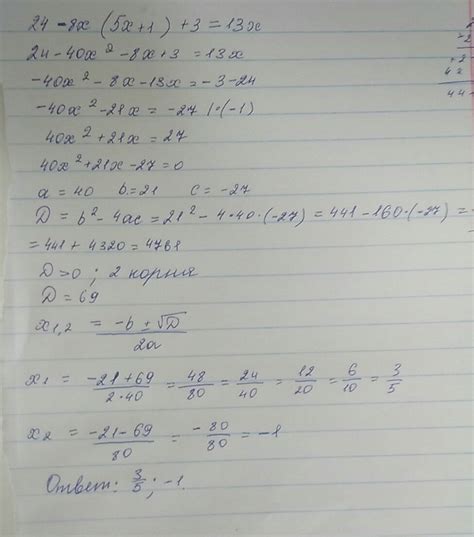 24 - 8x (5x+1) + 3 = 13x
24 - 40x² - 8x + 3 = 13x
-40x² - 8x - 13x = -3 - 24
-40x² - 21x = -27 | · (-1)
40x² + 21x = 27
40x² + 21x - 27 = 0
a = 40 b = 21 c = -27
D = b² - 4ac = 21² - 4·40·(-27) = 441 - 160·(-27) =
= 441 + 4320 = 4761
D > 0 ; 2 корня
D = 69
x₁,₂ = (-b ± √D)/2a
x₁ = (-21+69)/(2·40) = 48/80 = 24/40 = 12/20 = 6/10 = 3/5
x₂ = (-21-69)/80 = -80/80 = -1
Ответ: 3/5 ; -1.